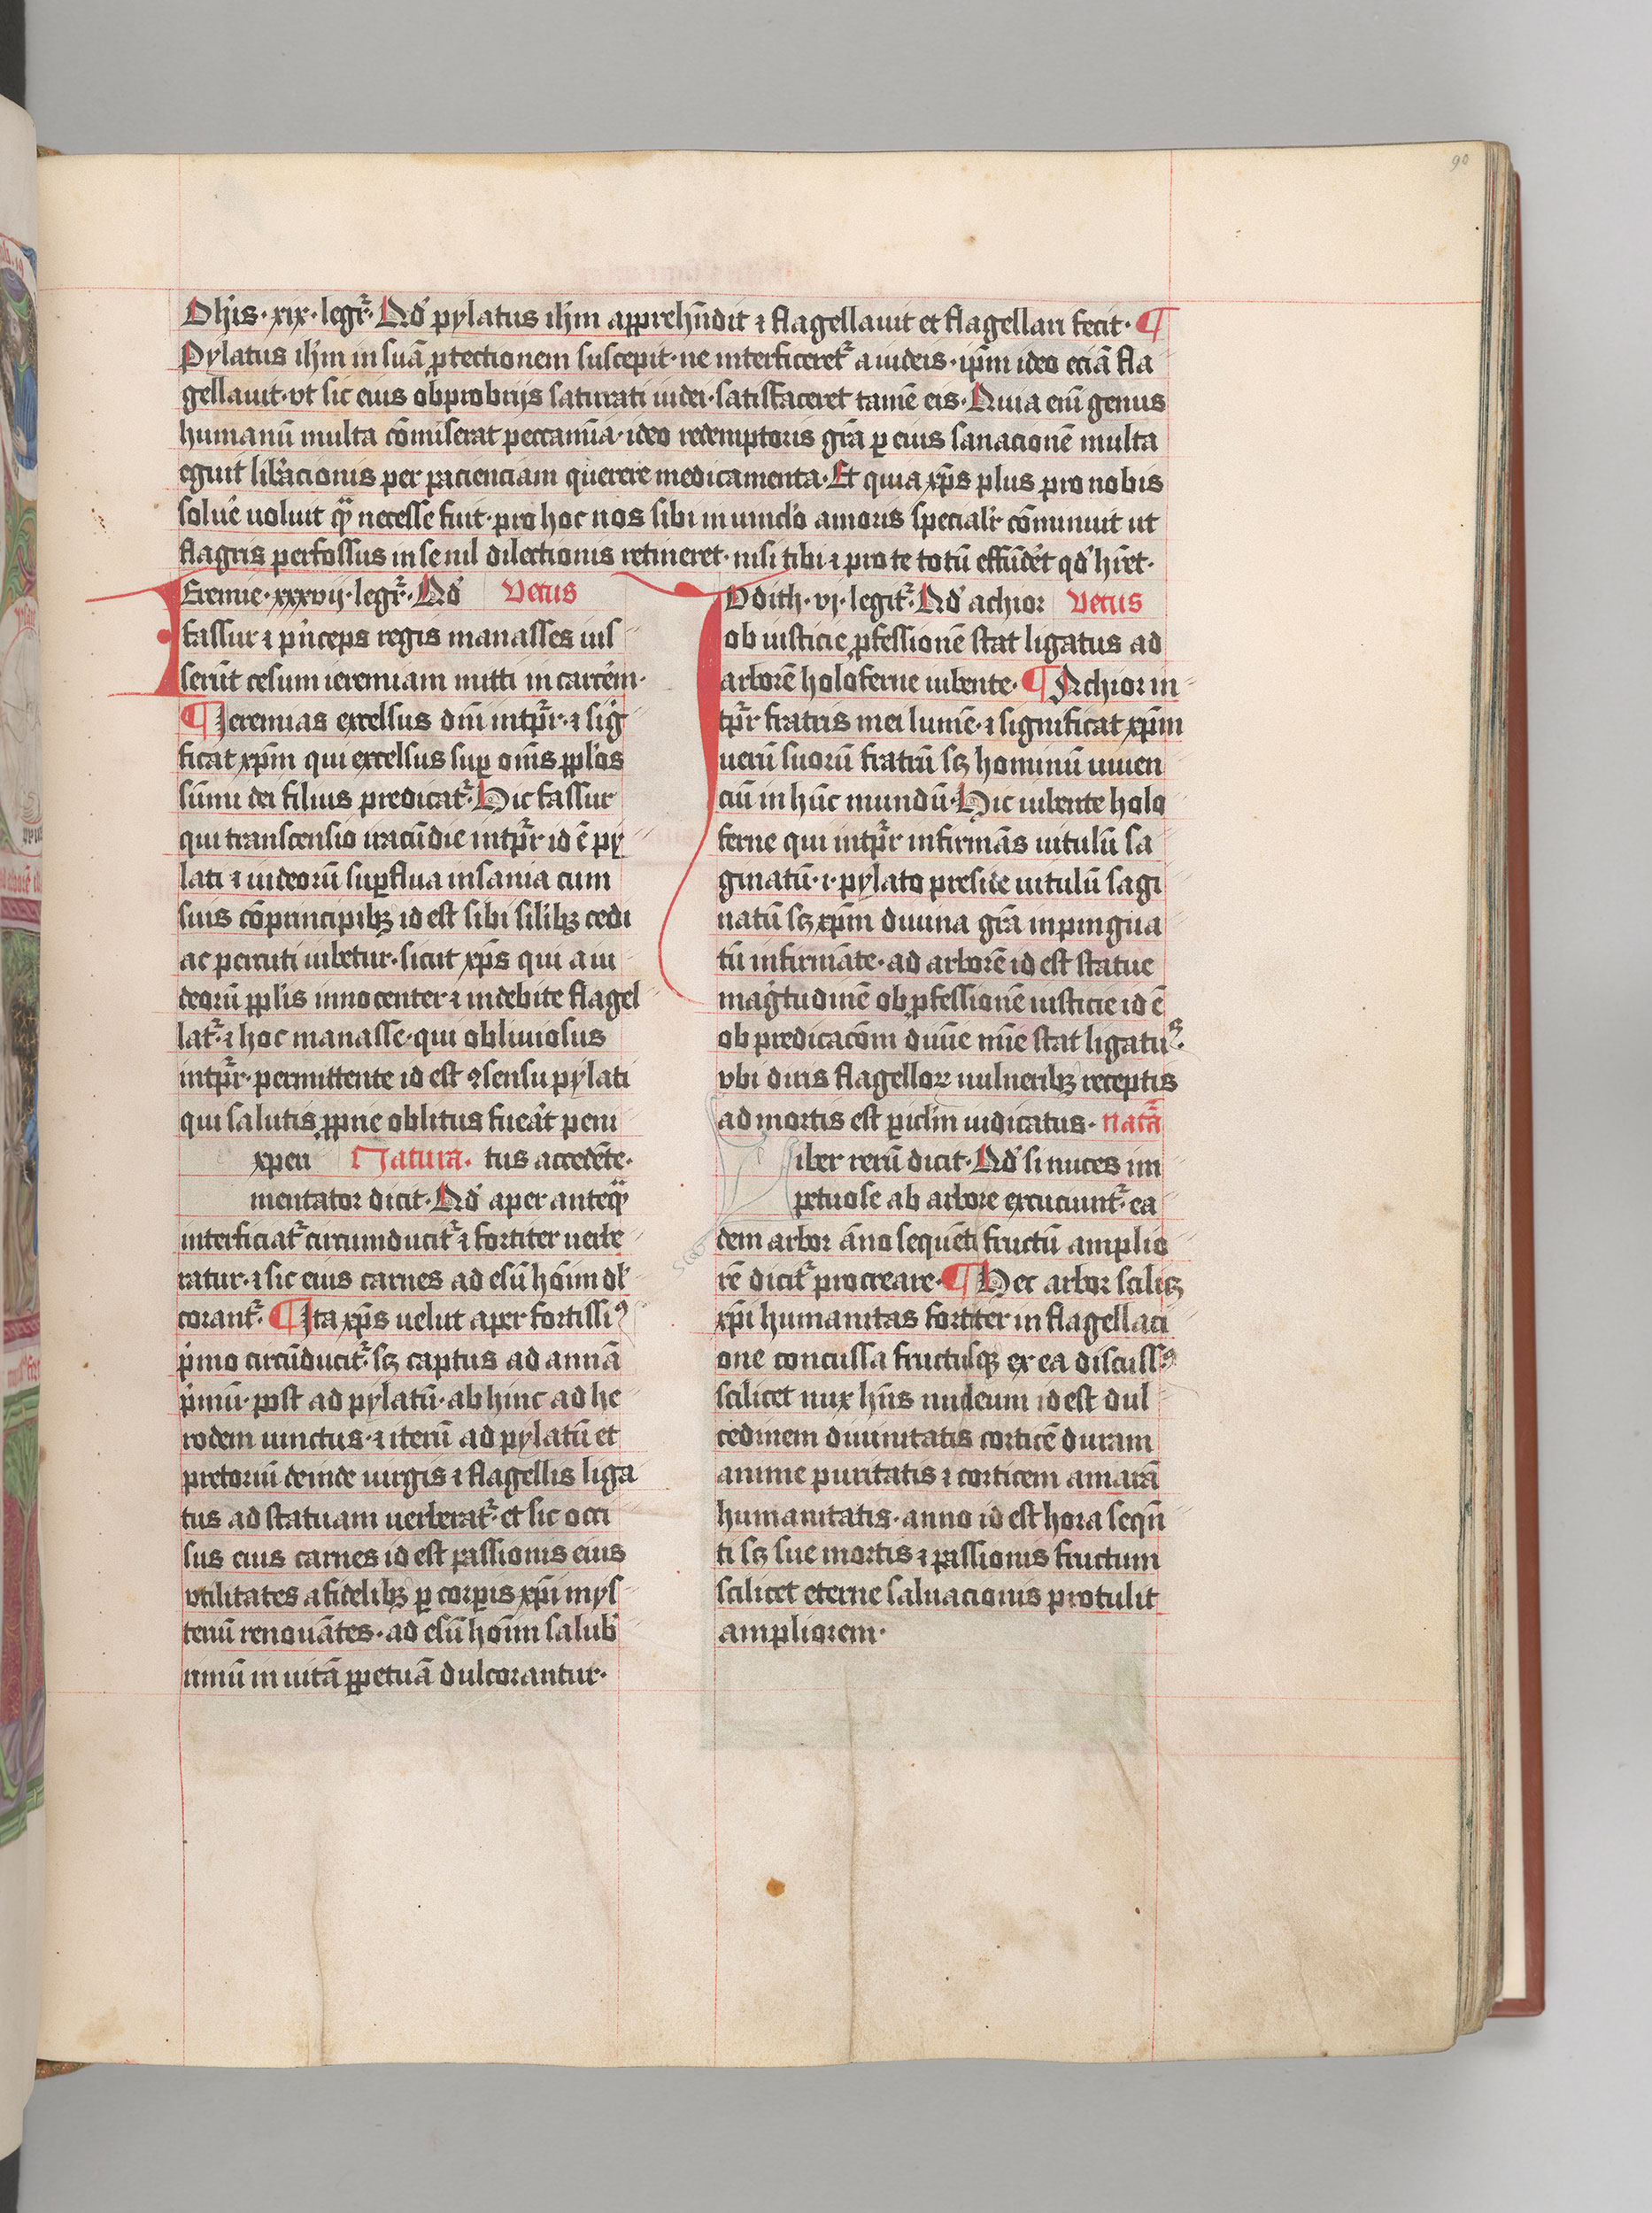 90
Ohīs · xix · legr̄ · Qd' pylatus ih̄m apprehn̄dit ⁊ flagellauit et flagellari fecit · ¶
Pylatus ih̄m in suā ꝓtectionem suscepit · ne interficeret᷑ a iudeis · ip̄m ideo eciā fla
gellauit · vt sic eius obprobrijs saturati iudei · satisfaceret tamē eis · Quia em̄ genus
humanū multa cōmiserat peccamīa · ideo redemptoris grā ꝑ eius sanacionē multa
eguit lib̓acionis per pacienciam querere medicamenta · Et quia xp̄s plus pro nobis
solu̓e uoluit qͣ̄ necesse fuit · pro hoc nos sibi in uinc̓lo amoris speciali᷑ cōmuniit ut
flagris perfossus in se nil dilectionis retineret · nisi tibi ⁊ pro te totū effūde̓t qd' hr̄et ·
Ieremie · xxxvij · legr̄ · Qd' Vetus
fassur ⁊ pͥnceps regis manasses ius
serūt cesum ieremiam mitti in carce̓m ·
¶ Jeremias excelsus dn̄i intp̄r · ⁊ sigͥ
ficat xp̄m qui excelsus suꝑ om̄s ppl̓os
sūmi dei filius predicat᷑ · Hic fassur
qui transcensio iracūdie intp̄r id ē py
lati ⁊ iudeorū suꝑflua insania cum
suis cōprincipibꝫ id est sibi sil̓ibꝫ cedi
ac percuti iubetur · sicut xp̄s qui a iu
deorū ppl̓is innocenter ⁊ indebite flagel
lat᷑ · ⁊ hoc manasse · qui obliuiosus
intp̄r · permittente id est ꝯsensu pylati
qui salutis ꝓpͥe oblitus fuea̓t peni
xpen Natura · tus accedēte ·
mentator dicit · Qd' aper anteqͣ̄
interficiat᷑ circumducit᷑ ⁊ fortiter uerbe
ratur · ⁊ sic eius carnes ad esū hoīm dl̓
corant᷑ · ¶ Ita xp̄s uelut aper fortissi⁹
pͥmo circūducit᷑ · sꝫ captus ad annā
pͥmū · post ad pylatū · ab hinc ad he
rodem uinctus · ⁊ iterū ad pylatū et
pretoriū deinde uirgis ⁊ flagellis liga
tus ad statuam uerberat᷑ · et sic occi
sus eius carnes id est passionis eius
vtilitates a fidelibꝫ ꝑ corpis xp̄i mys
teriū renouātes · ad esū hoīm salub̓
rimū in uitā ꝑpetuā dulcorantur ·
Iudith · vj · legit᷑ · Qd' achior Vetus
ob iusticie ꝓfessionē stat ligatus ad
arborē holoferne iubente · ¶ Achior in
tp̄r fratris mei lumē · ⁊ significat xp̄m
uerū suorū fratrū sꝫ hominū uiuen
ciū in hūc mundū · Hic iubente holo
ferne qui intp̄r infirmās uitulū sa
ginatū · i · pylato preside uitulū sagi
natū sꝫ xp̄m diuina grā inpingua
tū infirmāte · ad arborē id est statue
magͥtudinē ob ꝓfessionē iusticie id ē
ob predicacōm diuīe mīe stat ligatuˢ ·
vbi diris flagelloꝝ uulneribꝫ receptis
ad mortis est ꝑicl̓m iudicatus · natͣā
iber rerū dicit · Qd' si nuces im
petuose ab arbore excuciunt᷑ · ea
dem arbor āno sequēti fructū amplio
rē dicit᷑ procreare · ¶ Hec arbor scil̓icꝫ
xp̄i humanitas fortiter in flagellaci
one concussa fructusqꝫ ex ea discuss⁹
scilicet nux hn̄s nucleum id est dul
cedinem diuinitatis corticē duram
anime puritatis ⁊ corticem amarā
humanitatis · anno id est hora sequn̄
ti sꝫ sue mortis ⁊ passionis fructum
scilicet eterne saluacionis protulit
ampliorem ·